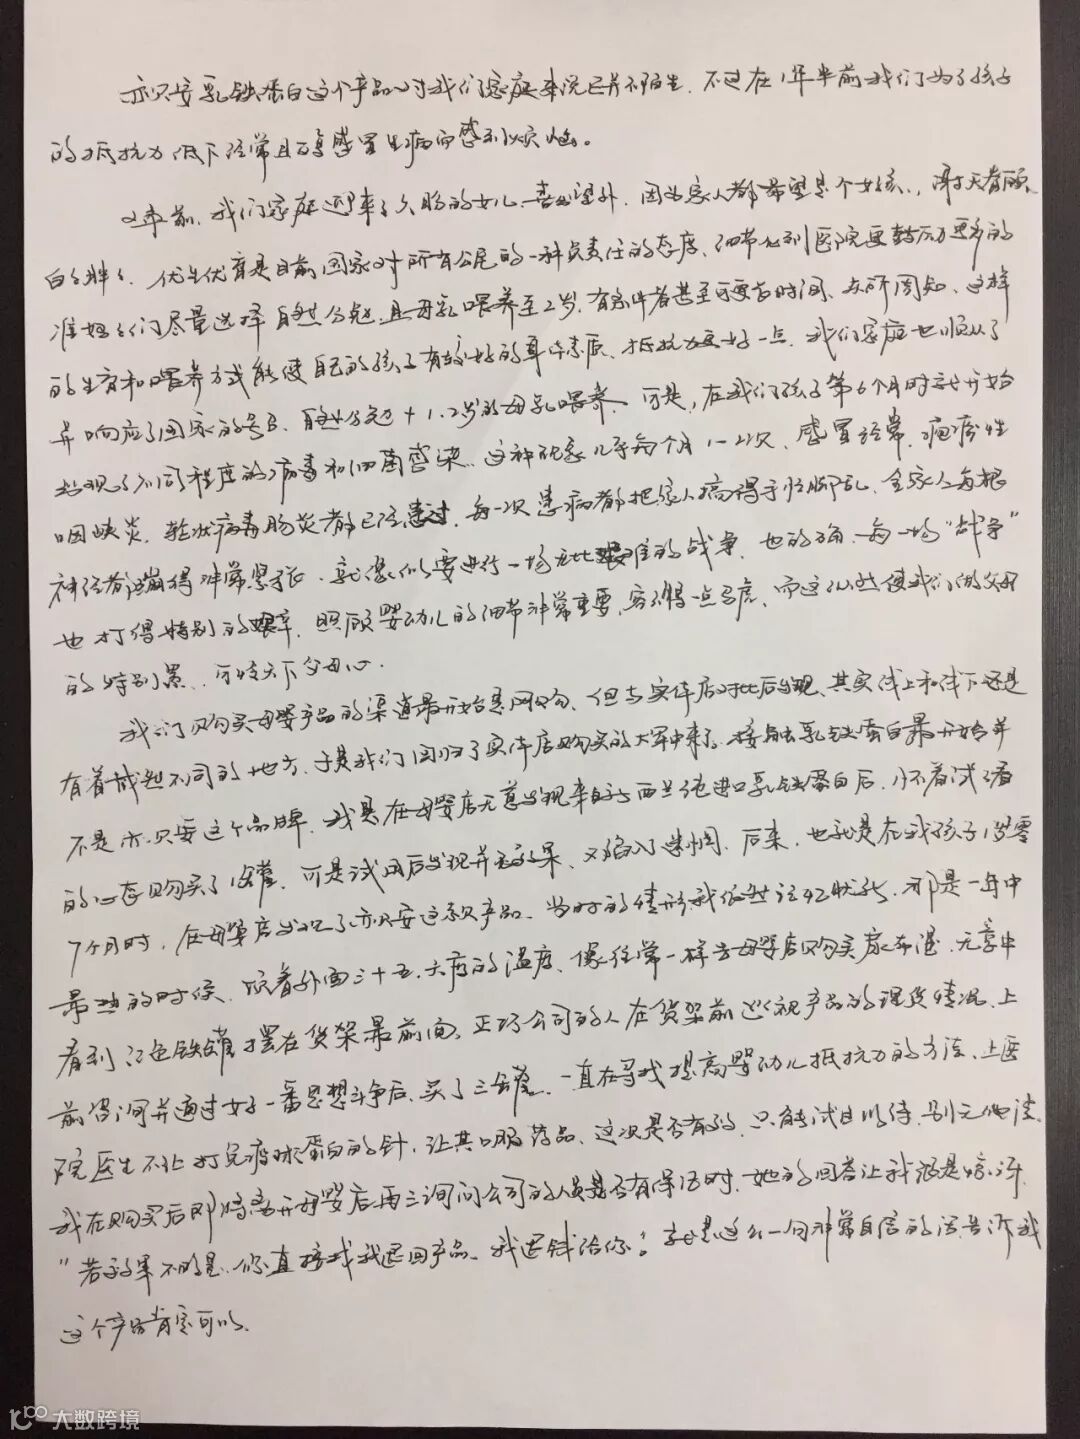 亦只安乳铁蛋白这个产品对我们家庭来说已并不陌生，不过在1年半前我们为了孩子
的抵抗力低下经常且易感冒生病而感到烦恼。
2年前，我们家庭迎来了久盼的女儿，喜出望外，因为家人都希望是个女孩，，谢天眷顾。
白白胖胖，优生优育是目前国家对所有公民的一种负责任的态度，细节化到医院更鼓励更多的
准妈妈们尽量选择自然分娩，且母乳喂养至2岁，有条件者甚至可更长时间，众所周知，这样
的生育和喂养方式能使自己的孩子有较好的身体素质、抵抗力更好一点，我们家庭也顺从了
并响应了国家的号召，自然分娩+1.2岁的母乳喂养，可是，在我们孩子第6个月时就开始
出现了不同程度的病毒和细菌感染，这种现象几乎每个月1-2次，感冒经常，疱疹性
咽峡炎，轮状病毒肠炎都已经患过，每一次患病都把家人搞得手忙脚乱，全家人每根
神经都蹦得非常紧张，就像似要进行一场无比艰难的战争，也的确，每一场“战争”
也打得特别的艰辛，照顾婴幼儿的细节非常重要，容不得一点马虎，而这么些使我们做父母
的特别累，可怜天下父母心。
我们购买母婴产品的渠道最开始是网购，但与实体店对比后发现，其实线上和线下还是
有着截然不同的地方，于是我们回归了实体店购买的大军中来了，接触乳铁蛋白最开始并
不是亦只安这个品牌，我是在母婴店无意发现来自新西兰纯进口乳铁蛋白后，小不着试试看
的心态购买了1罐，可是试用后发现并无效果，又陷入了迷惘，后来，也就是在我孩子1岁零
7个月时，在母婴店发现了亦只安这款产品，当时的情形我依然记忆犹新，那是一年中
最热的时候，顶着外面三十五、六度的温度，像往常一样去母婴店购买尿布湿，无意中
看到红色铁罐摆在货架最前面，正巧公司的人在货架前巡视产品的理货情况，上
前咨询并通过好一番思想斗争后，买了三罐，一直在寻找提高婴幼儿抵抗力的方法，上医
院医生不让打免疫球蛋白的针，让其口服药品，这次是否有效，只能试目以待，别无他法。
我在购买后即将离开母婴店再三询问公司的人员是否有保障时，她的回答让我很是惊讶，
“若效果不明显，你直接找我退回产品，我退钱给你”，就是这么一句非常自信的话告诉我
这个产品肯定可以。
大数跨境